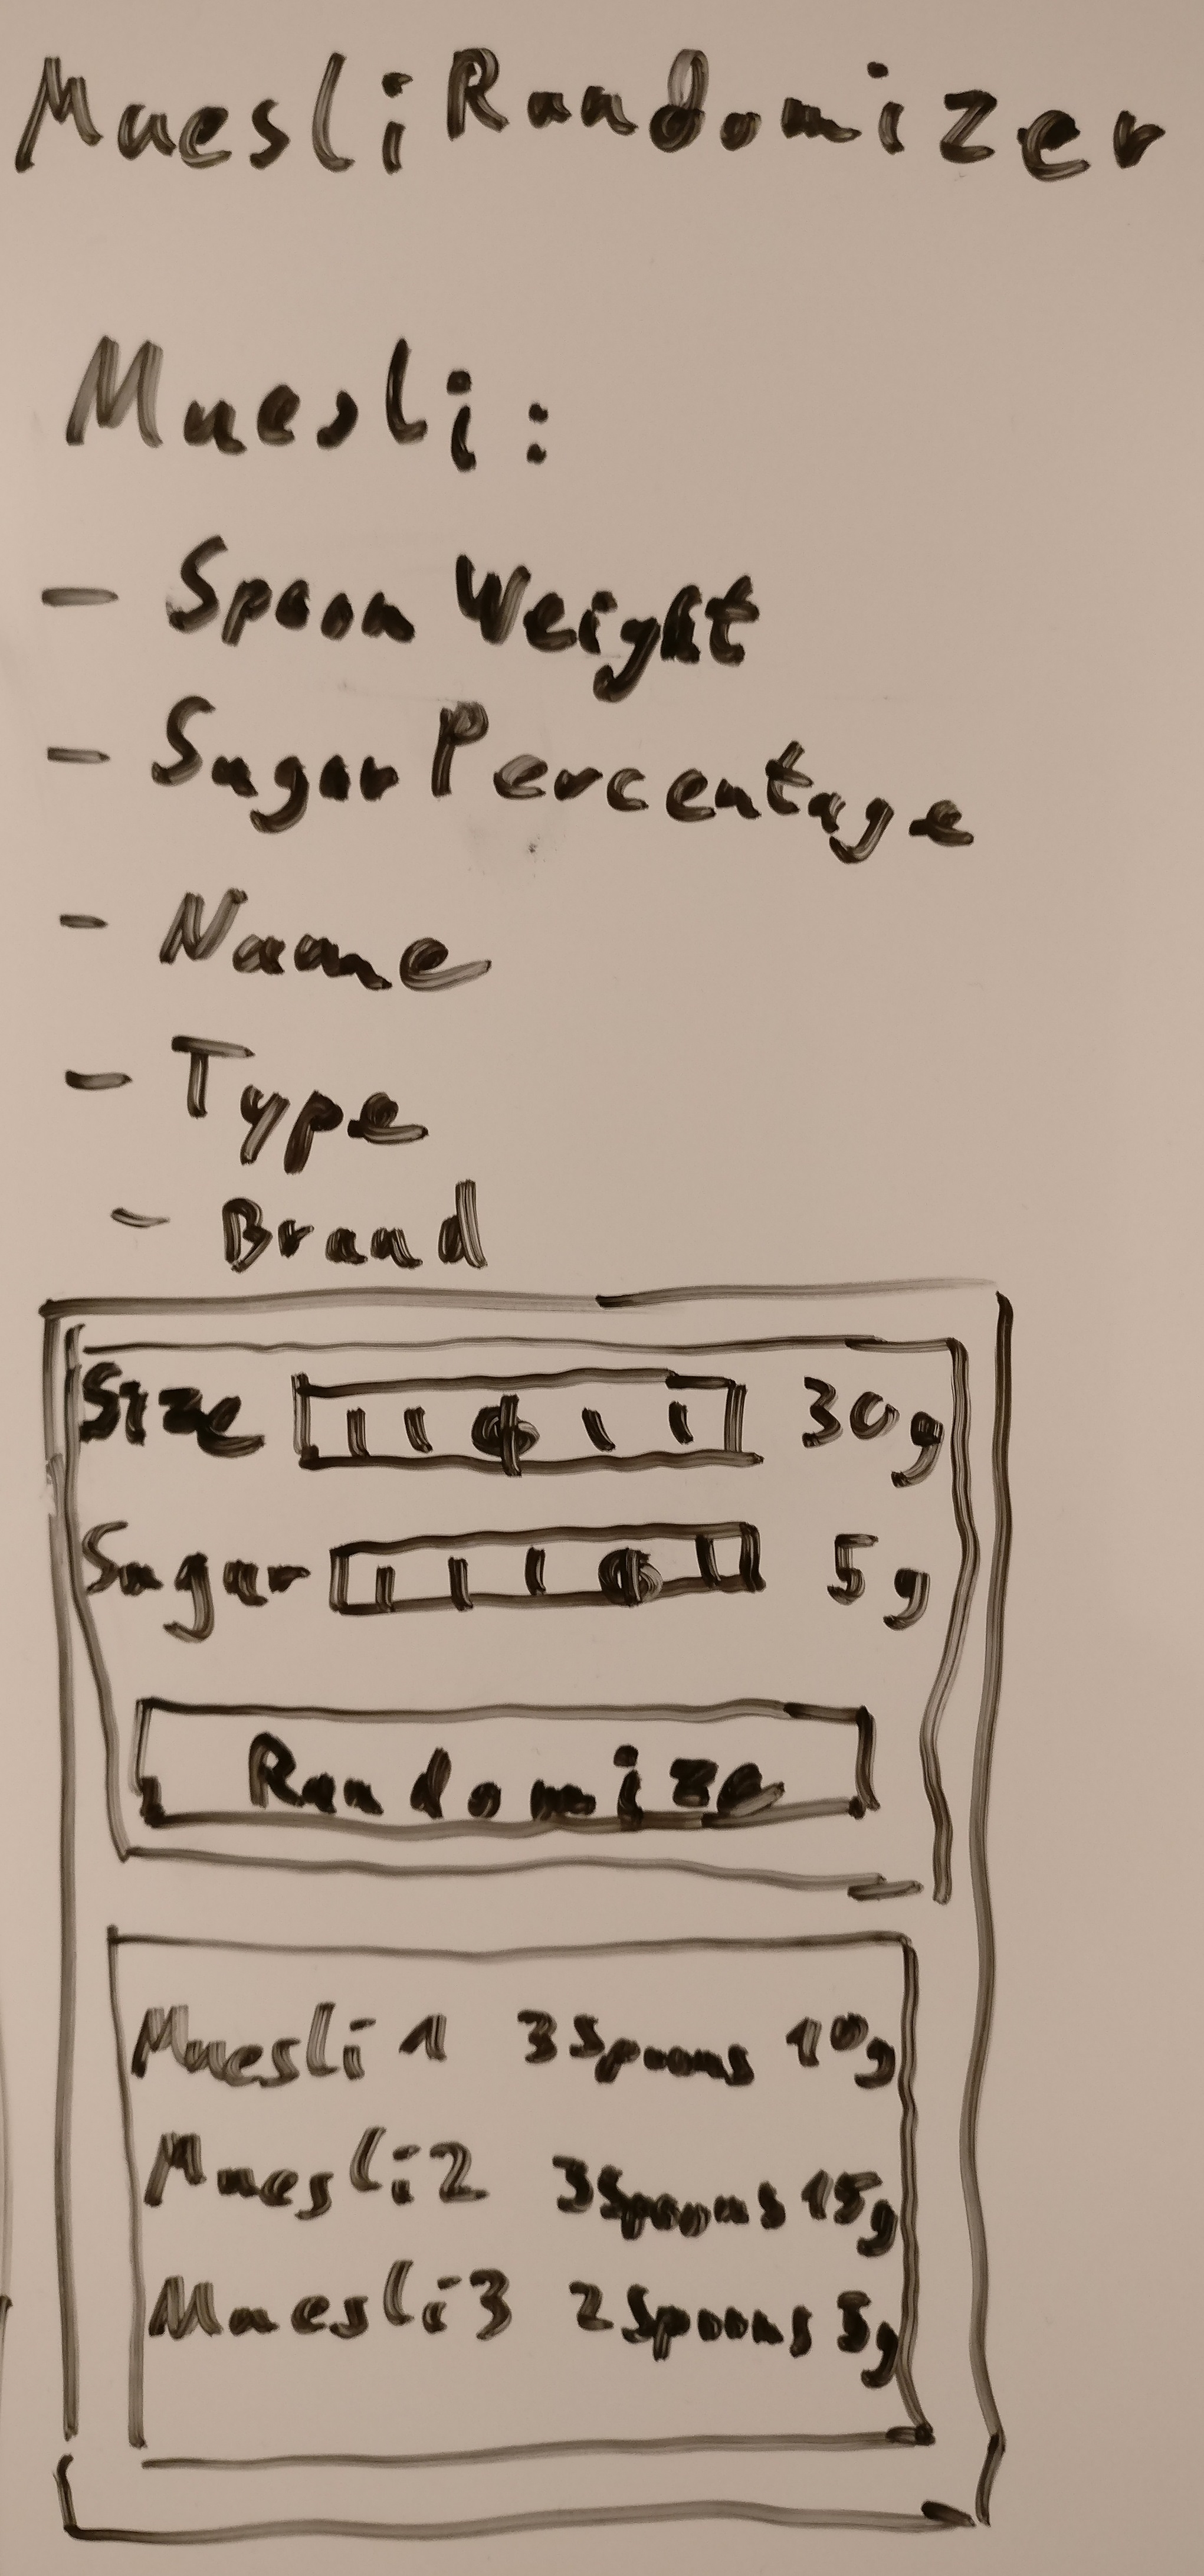 MuesliRandomizer
Muesli:
- Spoon Weight
- Sugar Percentage
- Name
- Type
- Brand
Size 30g
Sugar 5g
Randomize
Muesli 1 3 Spoons 10g
Muesli 2 3 Spoons 15g
Muesli 3 2 Spoons 5g